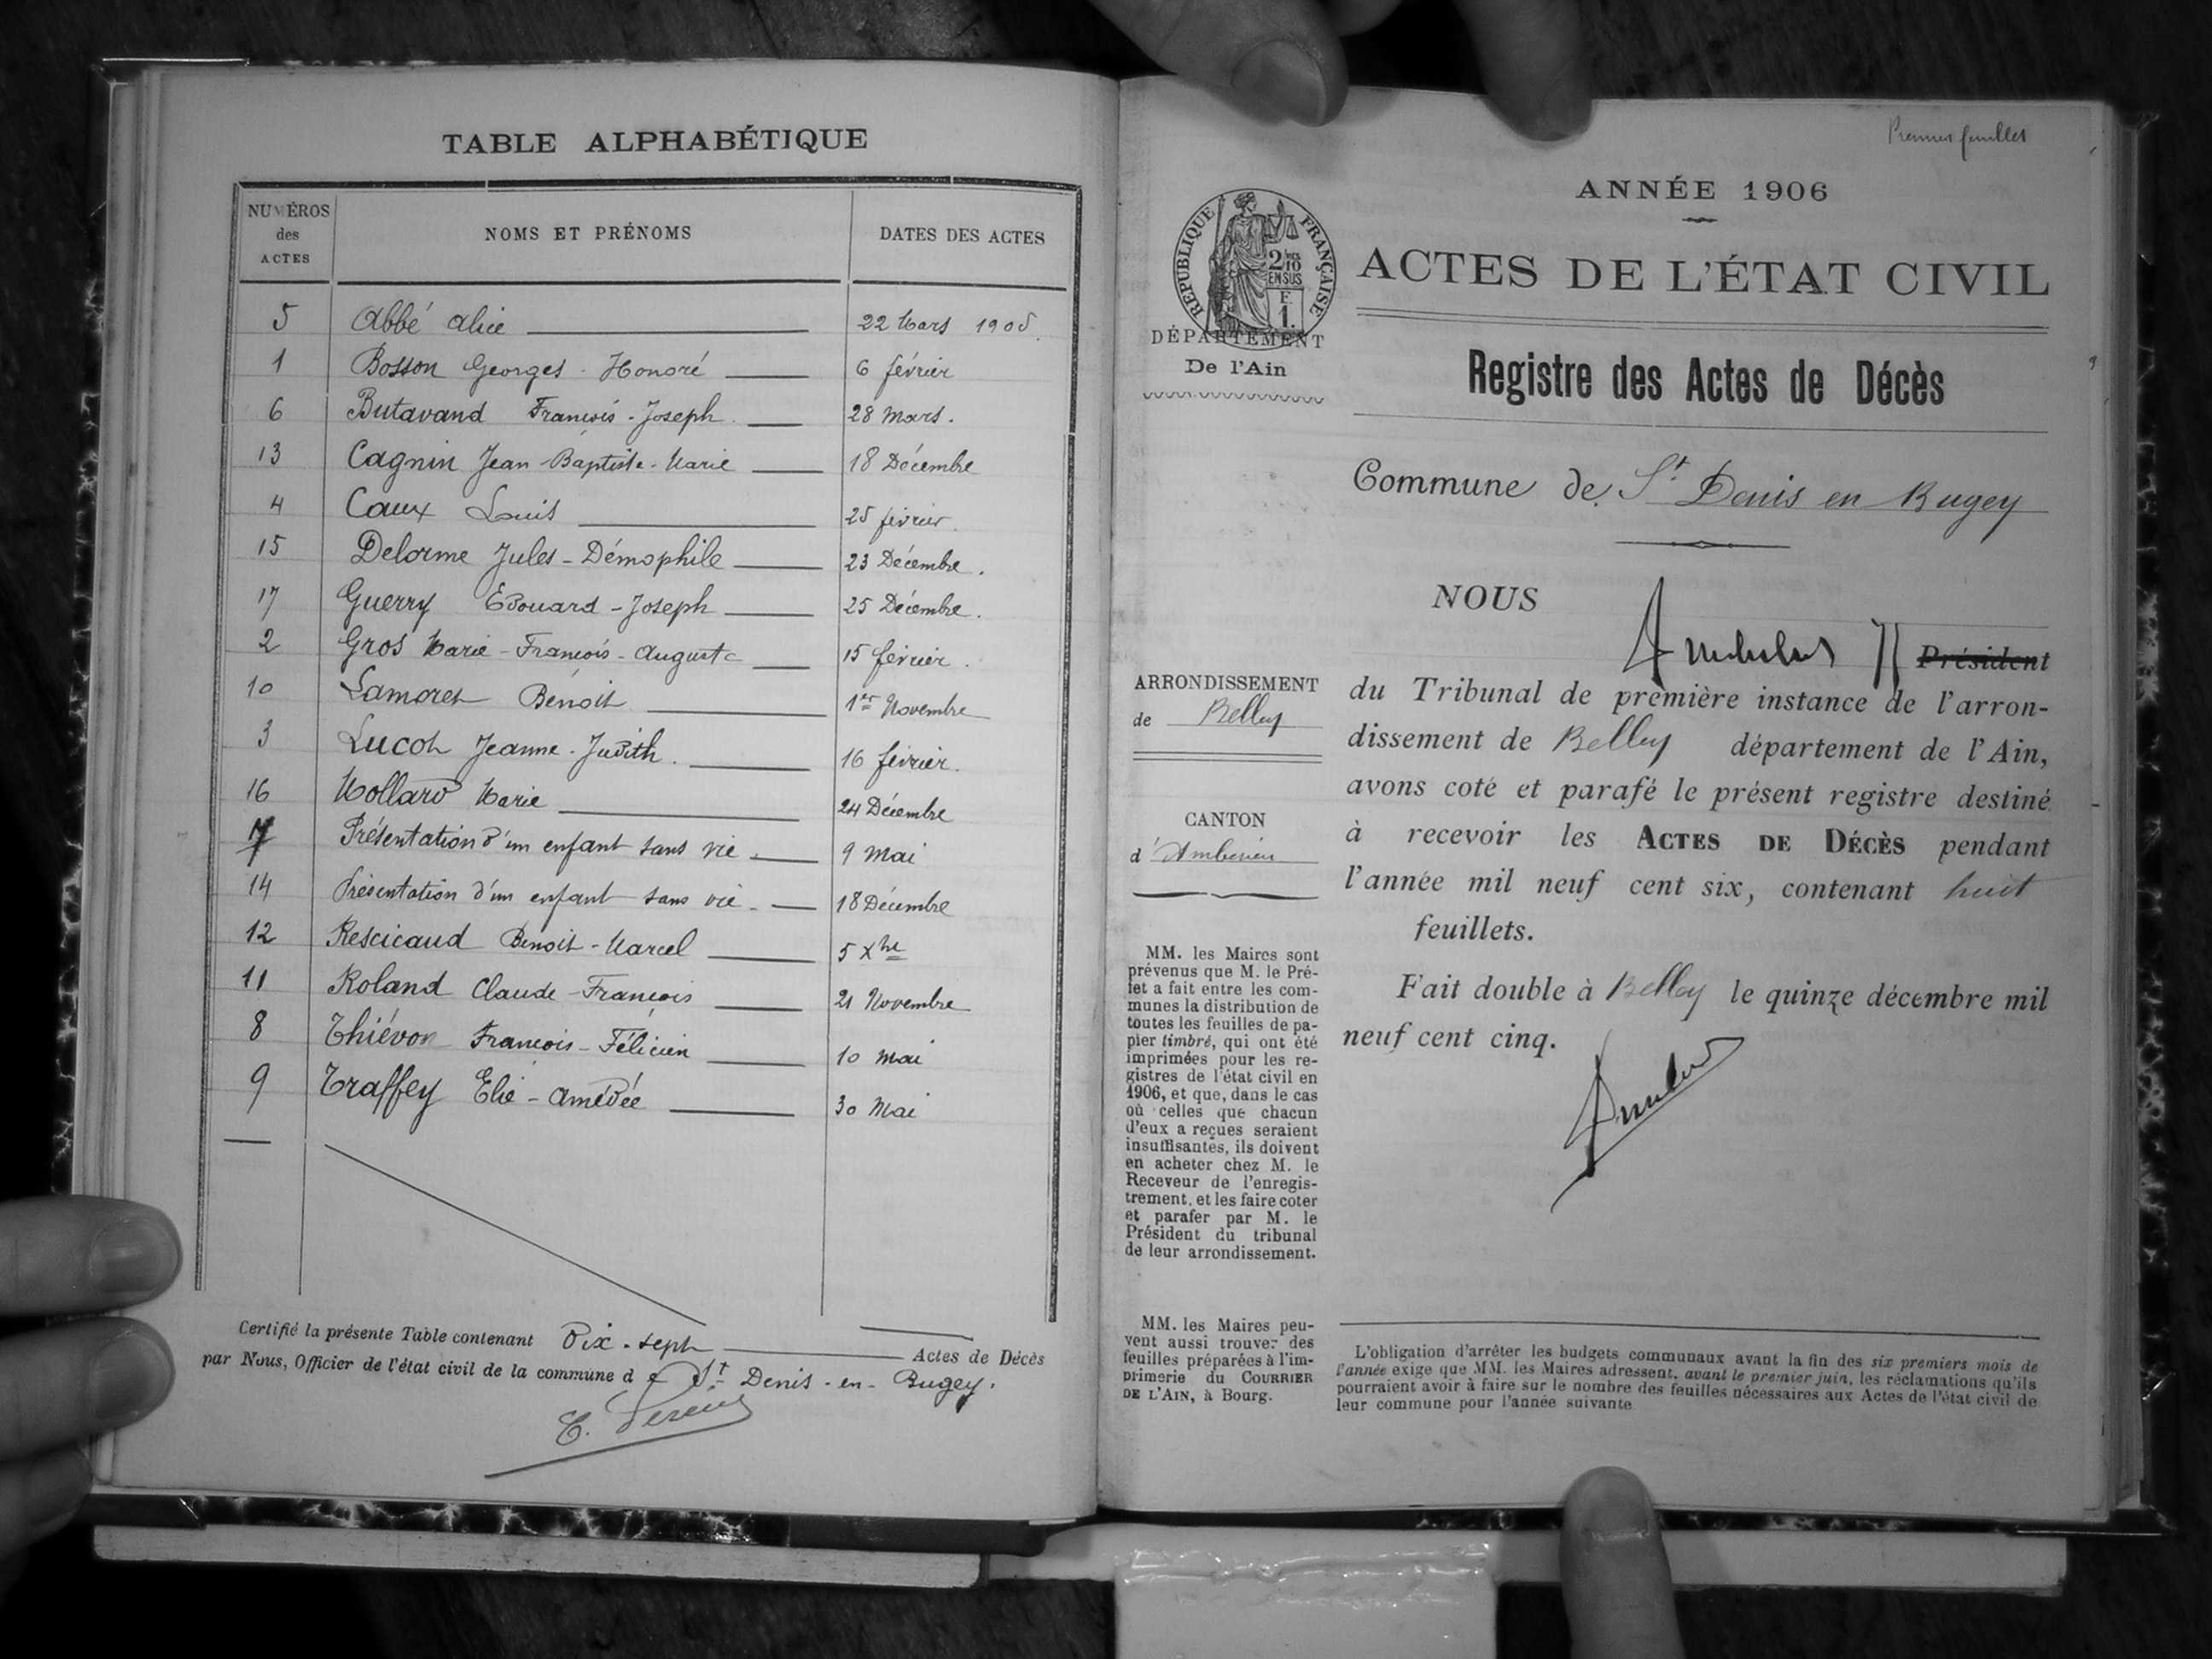 TABLE ALPHABÉTIQUE
NUMÉROS des ACTES
NOMS ET PRÉNOMS
DATES DES ACTES
5 Abbé Alice 22 Mars 1905.
1 Bosson Georges-Honoré 6 février
6 Butavand François-Joseph. 28 Mars.
13 Cagnin Jean-Baptiste-Marie 18 Décembre
4 Caux Louis 25 février.
15 Delorme Jules-Démophile 23 Décembre.
17 Guerry Edouard-Joseph 25 Décembre.
2 Gros Marie-François-Auguste 15 février.
10 Lamoret Benoit 1er Novembre
3 Lucot Jeanne-Judith. 16 février.
16 Mollard Marie 24 Décembre
7 Présentation d'un enfant sans vie 9 Mai
14 Présentation d'un enfant sans vie 18 Décembre
12 Rescicaud Benoit-Marcel 5 Xbre
11 Roland Claude-François 21 Novembre
8 Thiévon François-Félicien 10 Mai
9 Traffey Elie-Amédée 30 Mai
Certifié la présente Table contenant Dix-sept Actes de Décès
par Nous, Officier de l'état civil de la commune de St Denis-en-Bugey.
Premier feuillet
ANNÉE 1906
RÉPUBLIQUE FRANÇAISE
2/10
EN SUS
F.
1.
ACTES DE L'ÉTAT CIVIL
DÉPARTEMENT
De l'Ain
Registre des Actes de Décès
Commune de St Denis en Bugey
NOUS
Président
ARRONDISSEMENT
de Belley
du Tribunal de première instance de l'arron-
dissement de Belley département de l'Ain,
avons coté et parafé le présent registre destiné
CANTON
d'Ambérieu
à recevoir les ACTES DE DÉCÈS pendant
l'année mil neuf cent six, contenant huit
feuillets.
Fait double à Belley le quinze décembre mil
neuf cent cinq.
MM. les Maires sont
prévenus que M. le Pré-
fet a fait entre les com-
munes la distribution de
toutes les feuilles de pa-
pier timbré, qui ont été
imprimées pour les re-
gistres de l'état civil en
1906, et que, dans le cas
où celles que chacun
d'eux a reçues seraient
insuffisantes, ils doivent
en acheter chez M. le
Receveur de l'enregis-
trement, et les faire coter
et parafer par M. le
Président du tribunal
de leur arrondissement.
MM. les Maires peu-
vent aussi trouver des
feuilles préparées à l'im-
primerie du COURRIER
DE L'AIN, à Bourg.
L'obligation d'arrêter les budgets communaux avant la fin des six premiers mois de
l'année exige que MM. les Maires adressent, avant le premier juin, les réclamations qu'ils
pourraient avoir à faire sur le nombre des feuilles nécessaires aux Actes de l'état civil de
leur commune pour l'année suivante